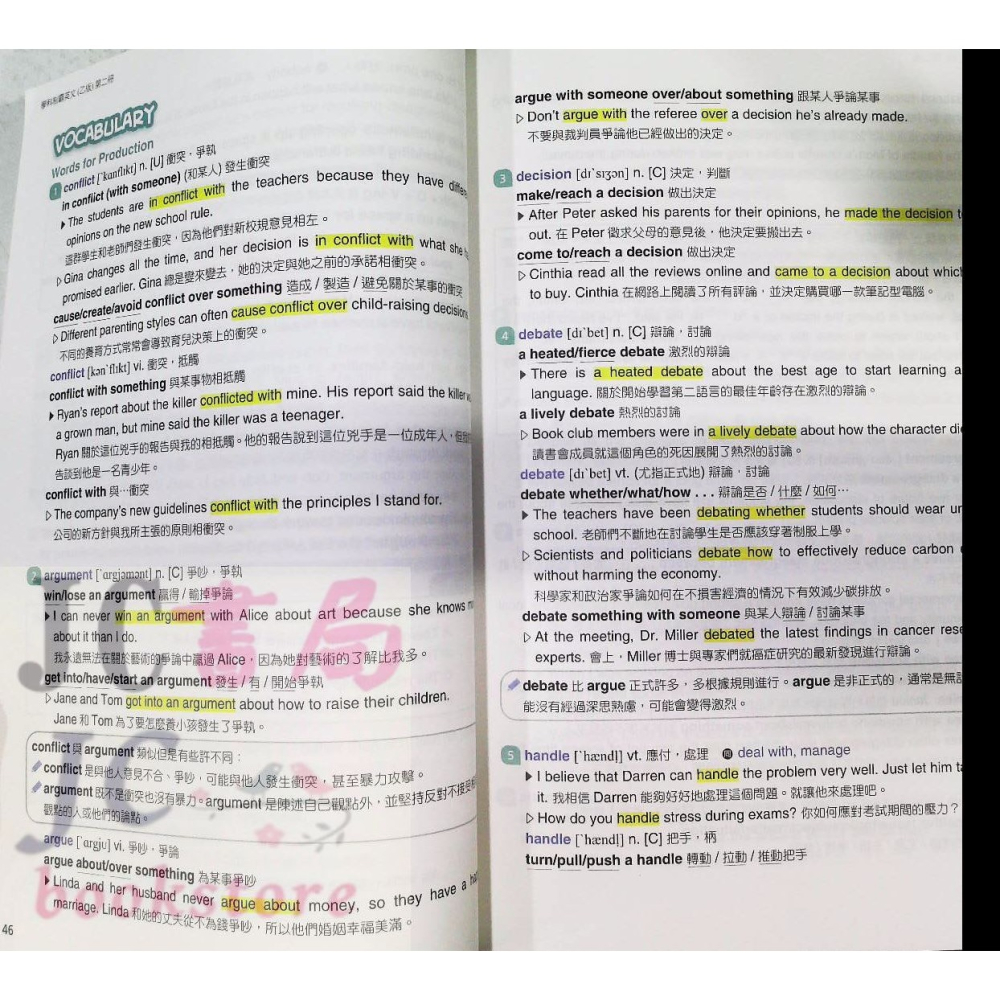 學科制霸英文(乙版)第二冊
VOCABULARY
Words for Production
1 conflict [ˋkɑnflɪkt] n. [U] 衝突，爭執
in conflict (with someone) (和某人) 發生衝突
▶ The students are in conflict with the teachers because they have
opinions on the new school rule.
這群學生和老師們發生衝突，因為他們對新校規意見相左。
▷ Gina changes all the time, and her decision is in conflict with what she
promised earlier. Gina 總是變來變去，她的決定與她之前的承諾相衝突。
cause/create/avoid conflict over something 造成 / 製造 / 避免關於某事的衝突
▷ Different parenting styles can often cause conflict over child-raising decisions
不同的養育方式常常會導致育兒決策上的衝突。
conflict [kənˋflɪkt] vi. 衝突，抵觸
conflict with something 與某事物相抵觸
▶ Ryan's report about the killer conflicted with mine. His report said the killer
a grown man, but mine said the killer was a teenager.
Ryan 關於這位兇手的報告與我的相抵觸。他的報告說到這位兇手是一位成年人，但
告談到他是一名青少年。
conflict with 與…衝突
▷ The company's new guidelines conflict with the principles I stand for.
公司的新方針與我所主張的原則相衝突。
2 argument [ˋɑrgjəmənt] n. [C] 爭吵，爭執
win/lose an argument 贏得 / 輸掉爭論
▶ I can never win an argument with Alice about art because she knows
about it than I do.
我永遠無法在關於藝術的爭論中贏過 Alice，因為她對藝術的了解比我多。
get into/have/start an argument 發生 / 有 / 開始爭執
▷ Jane and Tom got into an argument about how to raise their children.
Jane 和 Tom 為了要怎麼養小孩發生了爭執。
conflict 與 argument 類似但是有些許不同：
conflict 是與他人意見不合、爭吵，可能與他人發生衝突，甚至暴力攻擊。
argument 既不是衝突也沒有暴力。argument 是陳述自己觀點外，並堅持反對不接受
觀點的人或他們的論點。
argue [ˋɑrgju] vi. 爭吵，爭論
argue about/over something 為某事爭吵
▶ Linda and her husband never argue about money, so they have a
marriage. Linda 和她的丈夫從不為錢爭吵，所以他們婚姻幸福美滿。
46
argue with someone over/about something 跟某人爭論某事
▷ Don't argue with the referee over a decision he's already made.
不要與裁判員爭論他已經做出的決定。
3 decision [dɪˋsɪʒən] n. [C] 決定，判斷
make/reach a decision 做出決定
▶ After Peter asked his parents for their opinions, he made the decision
out. 在 Peter 徵求父母的意見後，他決定要搬出去。
come to/reach a decision 做出決定
▷ Cinthia read all the reviews online and came to a decision about which
to buy. Cinthia 在網路上閱讀了所有評論，並決定購買哪一款筆記型電腦。
4 debate [dɪˋbet] n. [C] 辯論，討論
a heated/fierce debate 激烈的辯論
▶ There is a heated debate about the best age to start learning a
language. 關於開始學習第二語言的最佳年齡存在激烈的辯論。
a lively debate 熱烈的討論
▷ Book club members were in a lively debate about how the character
讀書會成員就這個角色的死因展開了熱烈的討論。
debate [dɪˋbet] vt. (尤指正式地) 辯論，討論
debate whether/what/how . . . 辯論是否 / 什麼 / 如何…
▶ The teachers have been debating whether students should wear
school. 老師們不斷地在討論學生是否應該穿著制服上學。
▷ Scientists and politicians debate how to effectively reduce carbon
without harming the economy.
科學家和政治家爭論如何在不損害經濟的情況下有效減少碳排放。
debate something with someone 與某人辯論 / 討論某事
▷ At the meeting, Dr. Miller debated the latest findings in cancer
experts. 會上，Miller 博士與專家們就癌症研究的最新發現進行辯論。
debate 比 argue 正式許多，多根據規則進行。argue 是非正式的，通常是無
能沒有經過深思熟慮，可能會變得激烈。
5 handle [ˋhændl̩] vt. 應付，處理 同 deal with, manage
▶ I believe that Darren can handle the problem very well. Just let him
it. 我相信 Darren 能夠好好地處理這個問題。就讓他來處理吧。
▷ How do you handle stress during exams? 你如何應對考試期間的壓力？
handle [ˋhændl̩] n. [C] 把手，柄
turn/pull/push a handle 轉動 / 拉動 / 推動把手
JC書局
JC
bookstore